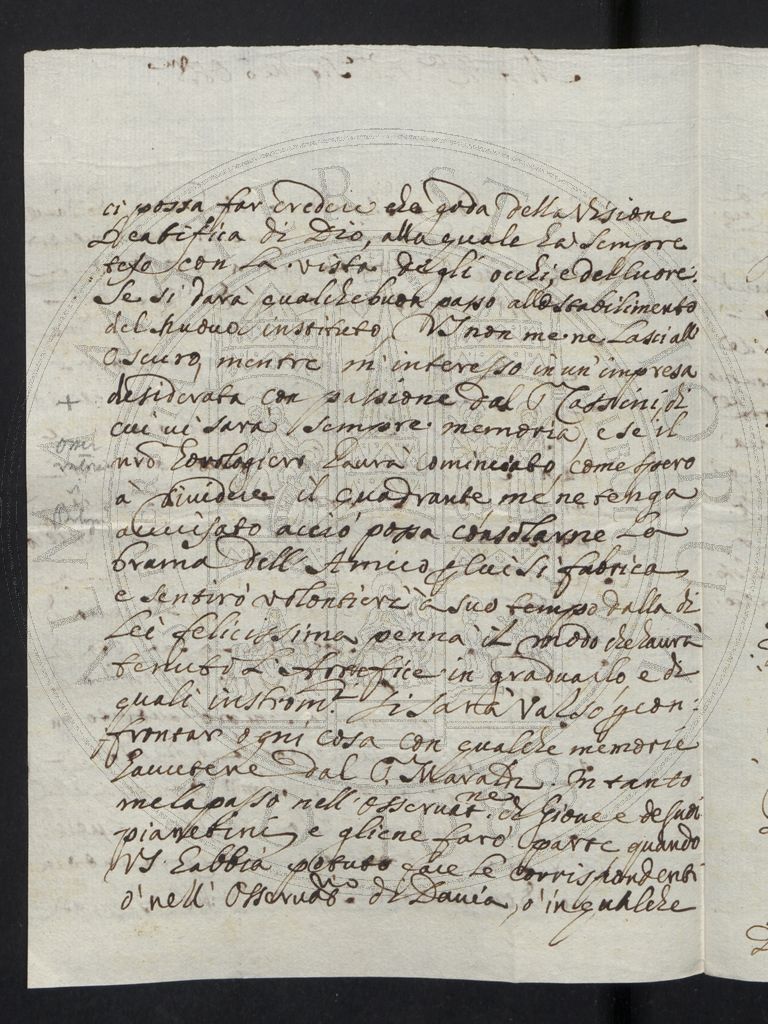 ci possa far credere che goda della Visione
Beatifica di Dio, alla quale hà sempre
teso con la vista degli occhi, e del cuore.
Se si darà qualche buon passo allo stabilimento
del nuovo instituto, VS non me ne lasci all'
oscuro, mentre m'interesso in un'impresa
desiderata con passione dal S. Cassini, di
cui vi sarà sempre memoria, e se il
nrõ horologiero haurà cominciato, come spero
à dividere il quadrante, me ne tenga
auuisato acciò possa consolarne la
brama dell'Amico p cui si fabrica,
e sentirò volontieri à suo tempo dalla di
Lei felicissima penna il modo che haurà
tenuto l'Artefice in graduarlo e di
quali instrom.ti si sarà valso p con:
frontar ogni cosa con qualche memorie
hauutene dal S. Maraldi. In tanto
me la passo nell'Osseruat.ne di Gioue e de suoi
pianetini, e gliene farò parte quando
VS habbia potuto fare le corrispondenti
ò nell'Osseruat.rio di Dauia, ò in qualche